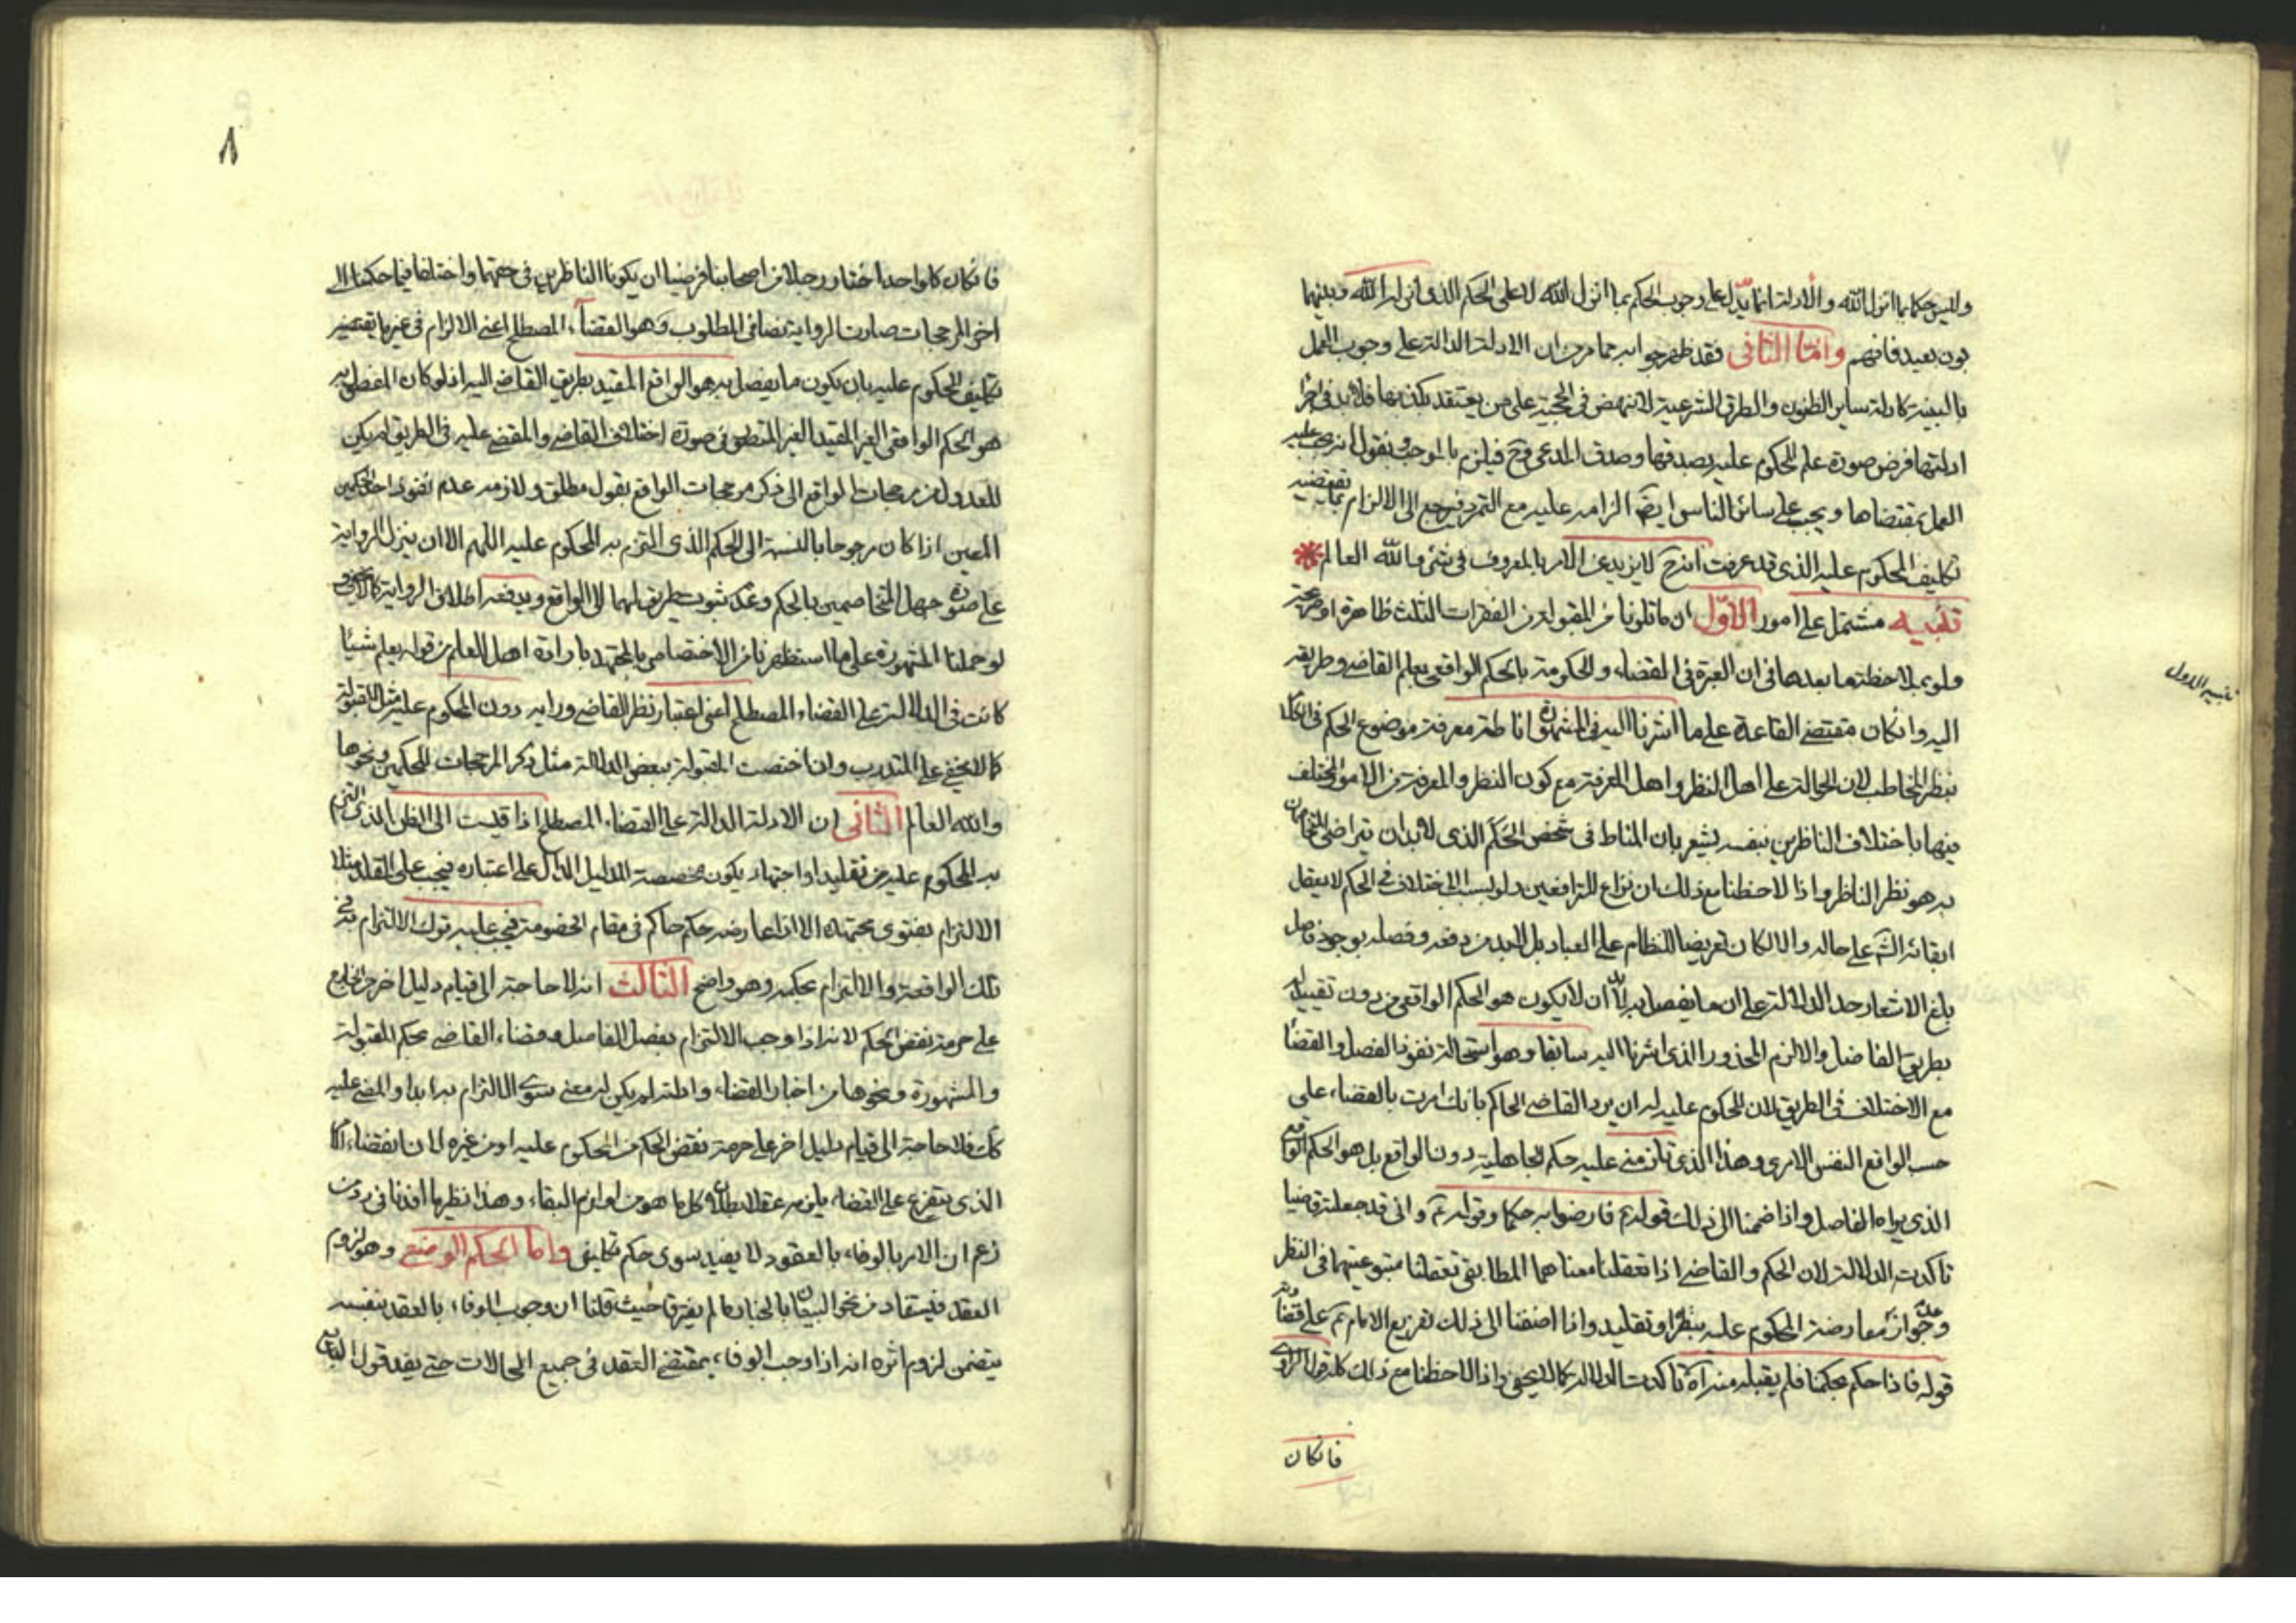 وليس حكما بما انزل الله والادلة انما تدل على وجوب الحكم بما انزل الله لا على الحكم الذي انزله الله وبينهما
بون بعيد فافهم واما الثاني فقد ظهر جوابه مما مر من ان الادلة الدالة على وجوب العمل
بالبينة كادلة ساير الظنون والطرق الشرعية لا تنهض في الحجية على من يعتقد بكذبها فلابد في اجراء
ادلتها فرض صورة علم المحكوم عليه بصدقها وصدق المدعي وح فيلزم بالموجب ونقول انه يجب عليه
العمل بمقتضاها ويجب على سائر الناس ايضا الزامه عليه مع التمرد فيرجع الى الالزام بما يقتضيه
تكليف المحكوم عليه الذي قد عرفت انه ح لا يزيد عن الامر بالمعروف في شئ والله العالم
تنبيه مشتمل على امور الاول ان ما تلونا من المقبولة من الفقرات الثلث ظاهرة او صريحة
ولو بملاحظة ما بعدها في ان العبرة في القضاء والحكومة بالحكم الواقعي بعلم القاضي وطريقه
تنبيه الاول
اليه وانكان مقتضى القاعدة على ما اشرنا اليه في المشهورة اناطة معرفة موضوع الحكم في الكل
بنظر المخاطب لان الحوالة على اهل النظر واهل المعرفة مع كون النظر والمعرفة من الامور المختلف
فيها باختلاف الناظرين بنفسه يشعر بان المناط في شخص الحكم الذي لابد ان يتراضى المتخاصمان
به هو نظر الناظر واذا لاحظنا مع ذلك ان نزاع المترافعين ولو بسبب الاختلاف في الحكم لا يعقل
ابقائه الشارع على حاله والا لكان تعريضا للنظام على العباد بل لابد من دفعه وفصله بوجود فاصل
بلغ الاشعار حد الدلالة على ان ما يفصل به لابد ان لا يكون هو الحكم الواقعي من دون تقييد له
بطريق الفاصل والا لزم المحذور الذي اشرنا اليه سابقا وهو استحالة نفوذ الفصل والقضاء
مع الاختلاف في الطريق لان المحكوم عليه له ان يرد القاضي الحاكم بانك امرت بالقضاء على
حسب الواقع النفس الامري وهذا الذي تقضي عليه حكم الجاهلية دون الواقع بل هو الحكم الواقعي
الذي يراه الفاصل واذا ضممنا الى ذلك قوله ع فارضوا به حكما وقوله ع واني قد جعلته قاضيا
تاكدت الدلالة لان الحكم والقاضي اذا تعقلنا معناهما المطابقي تعقلنا متبوعيتهما في النظر
وعدم جواز معارضة المحكوم عليه بنظر او تقليد واذا اضفنا الى ذلك تفريع الامام ع على قضائه
قوله فاذا حكم بحكمنا فلم يقبله منه آه تاكدت الدلالة كمالا يخفى واذا لاحظنا مع ذلك كله قول الراوي
فانكان
٨
فانكان كل واحد اختار رجلا من اصحابنا فرضيا ان يكونا الناظرين في حقهما واختلفا فيما حكما الى
اخر المرجحات صارت الرواية نصا في المطلوب وهو القضاء المصطلح اعني الالزام في غير ما يقتضيه
تكليف المحكوم عليه بان يكون ما يفصل به هو الواقع المقيد بطريق القاضي اليه اذ لو كان المفصل به
هو الحكم الواقعي الغير المقيد الغير المنطبق في صورة اختلاف القاضي والمقضي عليه في الطريق لم يكن
للعدول من مرجحات الواقع الى ذكر مرجحات الواقع بقول مطلق ولازمه عدم نفوذ احد الحكمين
المعين اذا كان مرجوحا بالنسبة الى الحكم الذي التزم به المحكوم عليه اللهم الا ان ينزل الرواية
على صورة جهل المتخاصمين بالحكم وعدم ثبوت طريق لهما الى الواقع ويدفعه اطلاق الرواية
لو حملنا المشهورة على ما استظهرنا من الاختصاص بالمجتهد بارادة اهل العلم من قوله يعلم شيئا
كانت في الدلالة على القضاء المصطلح اعني اعتبار نظر القاضي ورايه دون المحكوم عليه مثل المقبولة
كما لا يخفى على المتدرب وان اختصت المقبولة ببعض الدلالة مثل ذكر المرجحات للحكمين ونحوها
والله العالم الثاني ان الادلة الدالة على القضاء المصطلح اذا قيست الى الظن الذي التزم
به المحكوم عليه من تقليد او اجتهاد يكون مخصصة للدليل الدال على اعتباره فيجب على المقلد مثلا
الالتزام بفتوى مجتهده الا اذا عارضه حكم حاكم في مقام الخصومة فيجب عليه ترك الالتزام به في
تلك الواقعة والالتزام بحكمه وهو واضح الثالث انه لا حاجة الى قيام دليل اخر من الخارج
على حرمة نقض الحكم لانه اذا وجب الالتزام بفصل الفاصل وقضاء القاضي بحكم المقبولة
والمشهورة ونحوها من اخبار القضاء وادلته لم يكن له معنى سوى الالتزام به ابدا والمضي عليه
كك فلا حاجة الى قيام دليل اخر على حرمة نقض الحكم من المحكوم عليه او من غيره لما ان نفقضاء
الذي يتفرع على القضاء يلزمه عقلا بطلان كل ما هو من لوازم البقاء وهذا نظير ما افدنا في رد من
زعم ان الامر بالوفاء بالعقود لا يفيد سوى حكم تكليفي واما الحكم الوضعي وهو لزوم
العقد فيستفاد من نحو البيعان بالخيار ما لم يفترقا حيث قلنا ان وجوب الوفاء بالعقد بنفسه
يتضمن لزوم اثره انه اذا وجب الوفاء بمقتضى العقد في جميع الحالات حتى بعد قول البايع